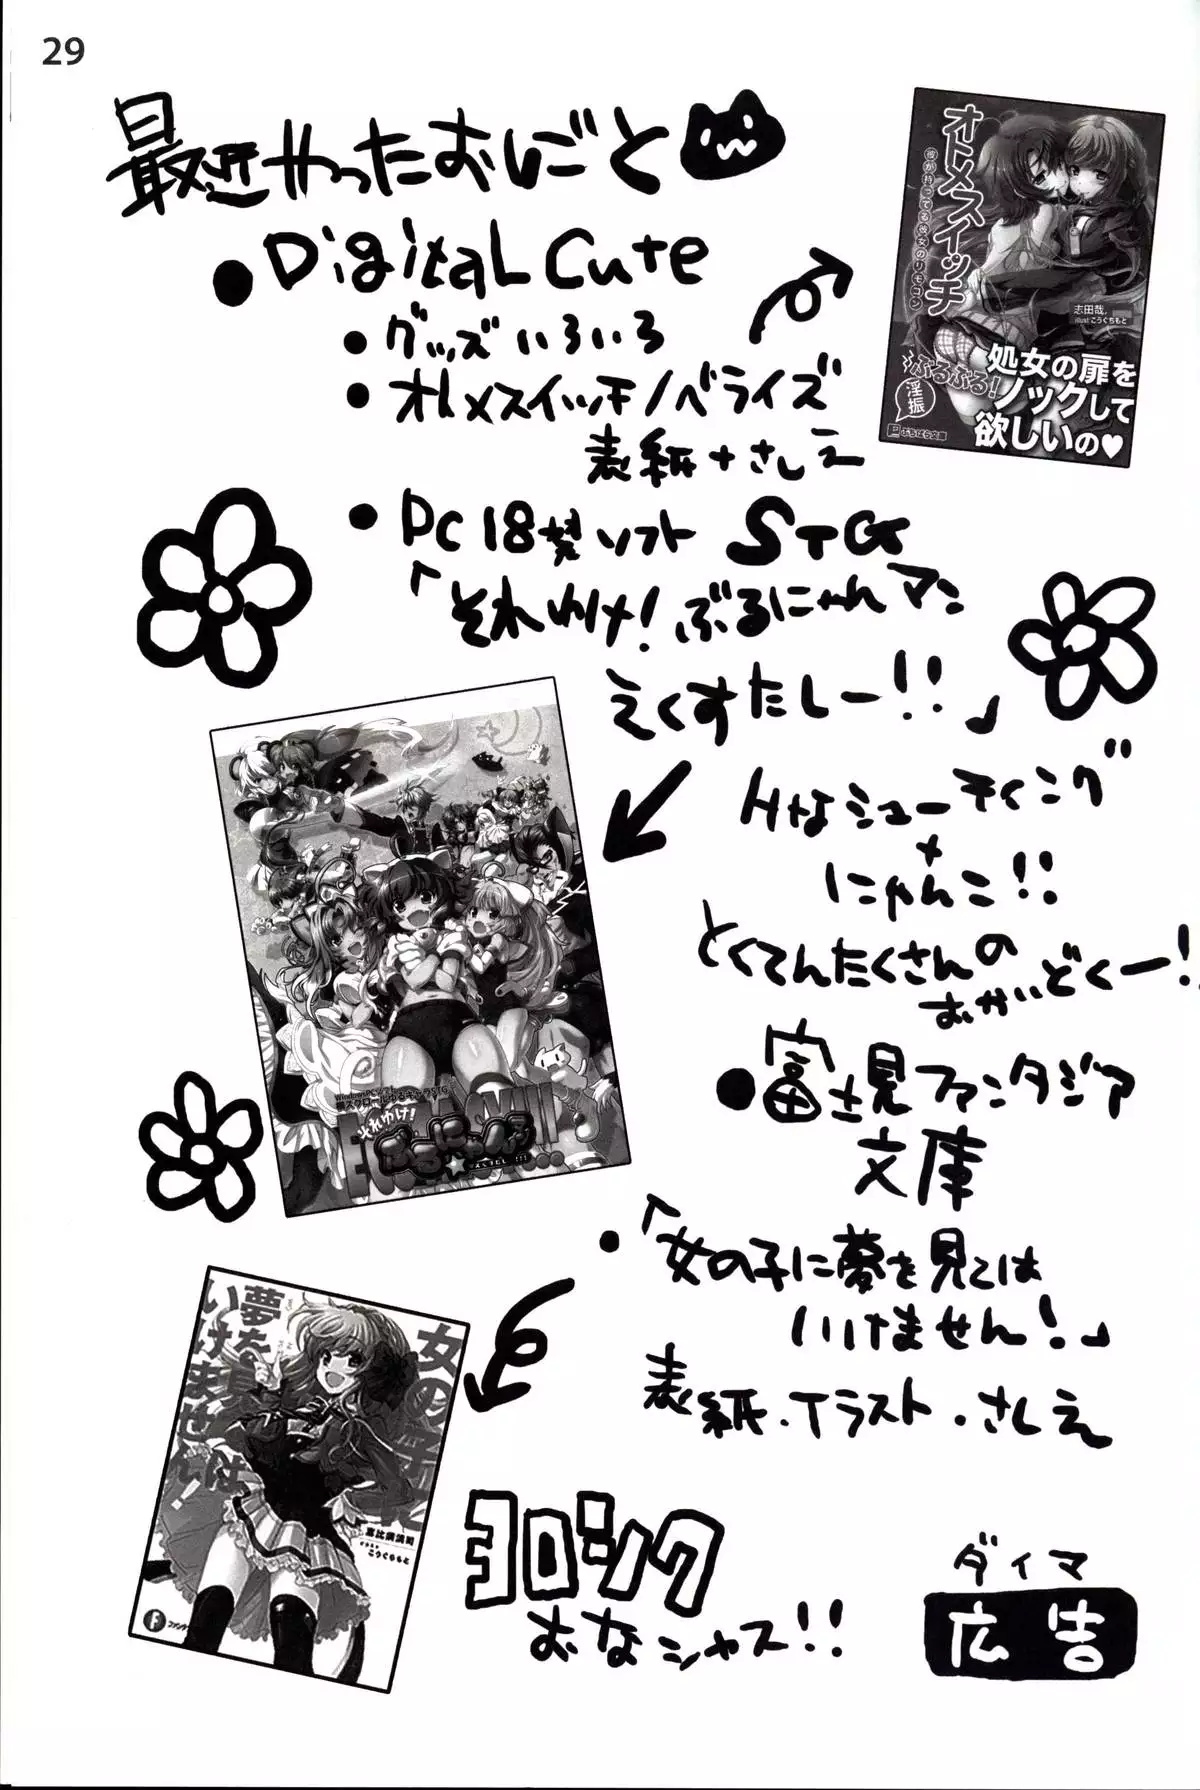 29
最近やったおしごと
・Digital Cute
・グッズいろいろ
・オトメスイッチノベライズ
表紙+さしえ
・PC18禁ソフト STG
「それゆけ!ぶるにゃんマン
えくすたしー!!」
Hなシューティング
+
にゃんこ!!
とくてんたくさんの
おかいどくー!
・富士見ファンタジア
文庫
・「女の子に夢を見ては
いけません!」
表紙・イラスト・さしえ
ヨロシク
おなシャス!!
ダイマ
広告
オトメスイッチ
彼が持ってる彼女のリモコン
志田哉,
illust:こうぐちもと
ぶるぶる!
淫振
処女の扉を
ノックして
欲しいの♥
ぷちぱら文庫
WindowsPCソフト
横スクロールゆるキャラSTG
それゆけ!
ぶるにゃんマン
女の子に
夢を見ては
いけません!
恵比須清司
イラスト
こうぐちもと